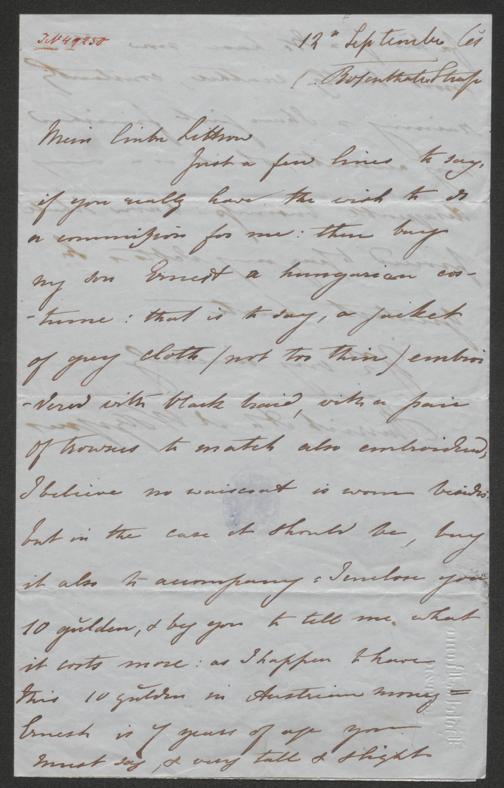 I.N. 49258
12th September
Rosenthaler Strasse
Just a few lines to say,
if you really have the wish to do
a commission for me: then buy
my son Ernest a hungarian cos-
-tume: that is to say, a jacket
of grey cloth (not too thin) embroi
-dered with black braid, with a pair
of trowers to match also embroidered,
I believe no waiscoat is worn besides:
but in the case it should be, buy
it also to accompany: I enclose you
10 gülden, & beg you to tell me what
it costs more: as I happen to have
this 10 gülden in Austrian money =
Ernest is 7 years of age you
must say, & very tall & slight